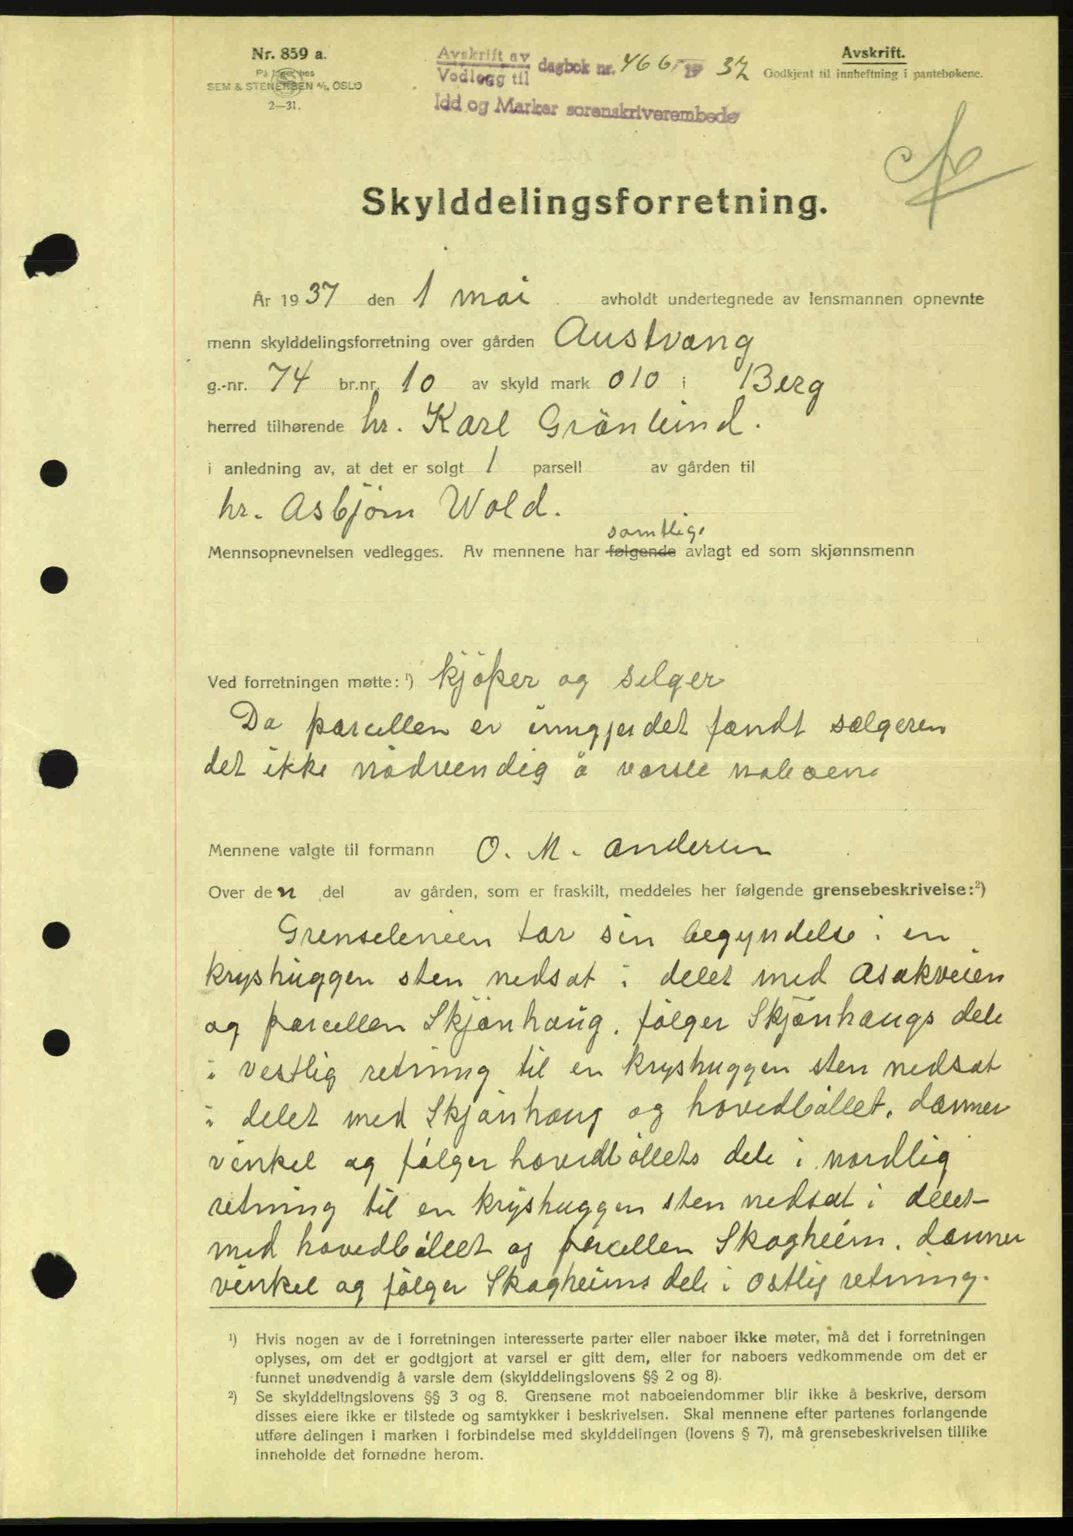 Nr. 859 a.
SEM & STENERSEN A/S, OSLO
2—31.
Avskrift av
Vedlegg til dagbok nr. 466 19 37
Idd og Marker sorenskriverembede
Avskrift.
Godkjent til innheftning i pantebøkene.
Skylddelingsforretning.
År 1937 den 1 mai avholdt undertegnede av lensmannen opnevnte
menn skylddelingsforretning over gården Austvang
g.-nr. 74 br.nr. 10 av skyld mark 010 i Berg
herred tilhørende hr. Karl Grönlund.
i anledning av, at det er solgt 1 parsell av gården til
hr. Asbjörn Wold.
samtlige
Mennsopnevnelsen vedlegges. Av mennene har følgende avlagt ed som skjønnsmenn
Ved forretningen møtte: ¹) kjöper og selger
Da parcellen er inngjerdet fandt sælgeren
det ikke nödvendig å varsle naboene
Mennene valgte til formann O. M. Andersen
Over den del av gården, som er fraskilt, meddeles her følgende grensebeskrivelse:²)
Grenselinien tar sin begyndelse i en
kryshuggen sten nedsat i delet med Asakveien
og parcellen Skjönhaug, fölger Skjönhaugs dele
i vestlig retning til en kryshuggen sten nedsat
i delet med Skjönhaug og hovedbôllet, danner
vinkel og fölger hovedbôllets dele i nordlig
retning til en kryshuggen sten nedsat i delet
med hovedbôllet og parcellen Skogheim, danner
vinkel og fölger Skogheims dele i östlig retning.
¹) Hvis nogen av de i forretningen interesserte parter eller naboer ikke møter, må det i forretningen
oplyses, om det er godtgjort at varsel er gitt dem, eller for naboers vedkommende om det er
funnet unødvendig å varsle dem (skylddelingslovens §§ 2 og 8).
²) Se skylddelingslovens §§ 3 og 8. Grensene mot naboeiendommer blir ikke å beskrive, dersom
disses eiere ikke er tilstede og samtykker i beskrivelsen. Skal mennene efter partenes forlangende
utføre delingen i marken i forbindelse med skylddelingen (lovens § 7), må grensebeskrivelsen tillike
inneholde det fornødne herom.